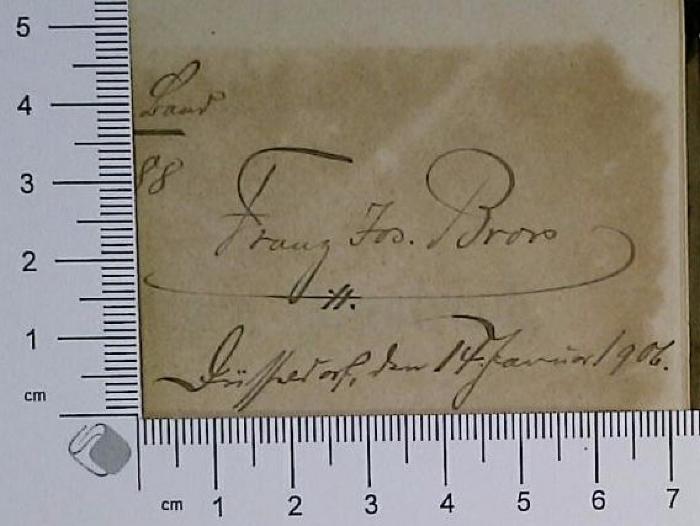 Band
88
Franz Jos. Brors
Düsseldorf, den 14. Januar 1906.
5
4
3
2
1
cm
cm 1 2 3 4 5 6 7